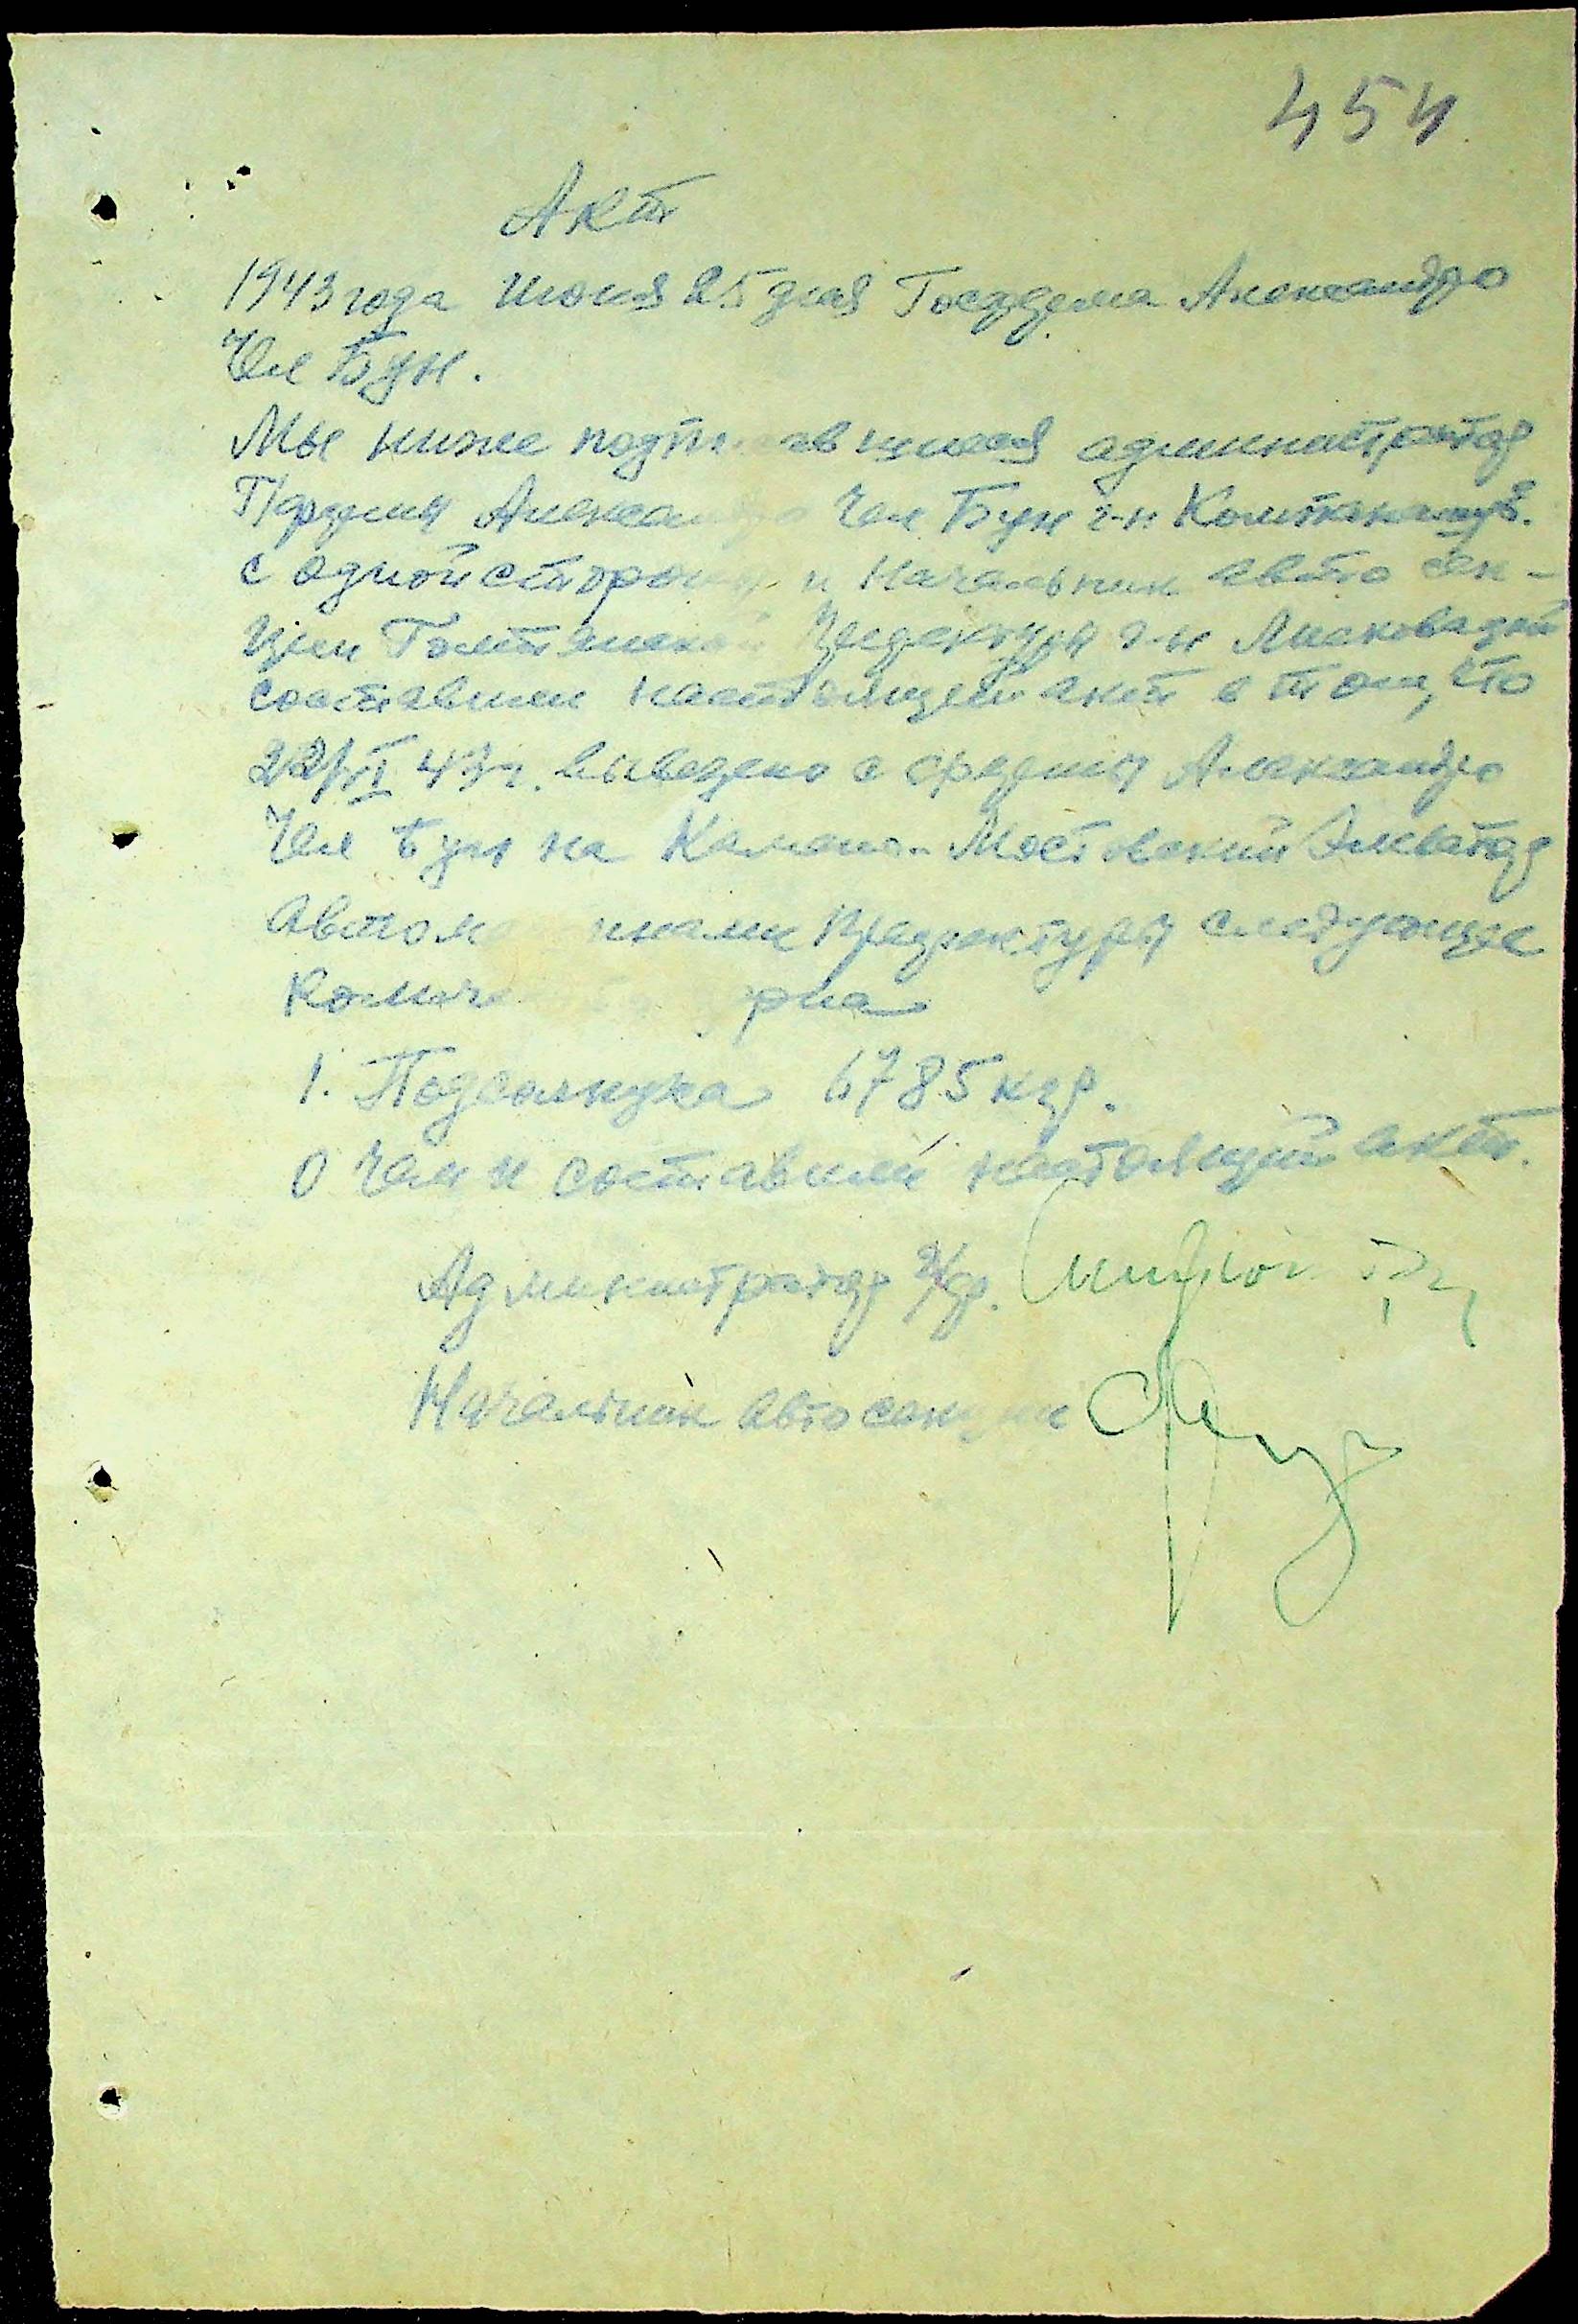 454
Акт
1943 года Июня 25 дня Госфдема Александро
Чел Бун.
Мы ниже подпи авшиеся администратор
Ч/фермы Алекса Чел Бун г-н
с одной стороны и Начальник авто сек-
ции Голтянской Префектуры г-н
составили настоящей акт в том, что
22/VI 43 г. вывезено с фермы Александро
Чел Бун на Каменно Мостовский Элеватор
автом инами Префектуры следующее
Количе рна
1. Подсолнуха 6785 кгр.
О чем и составили настоящий акт.
Администратор Ч/ф.
Начальник автосекции